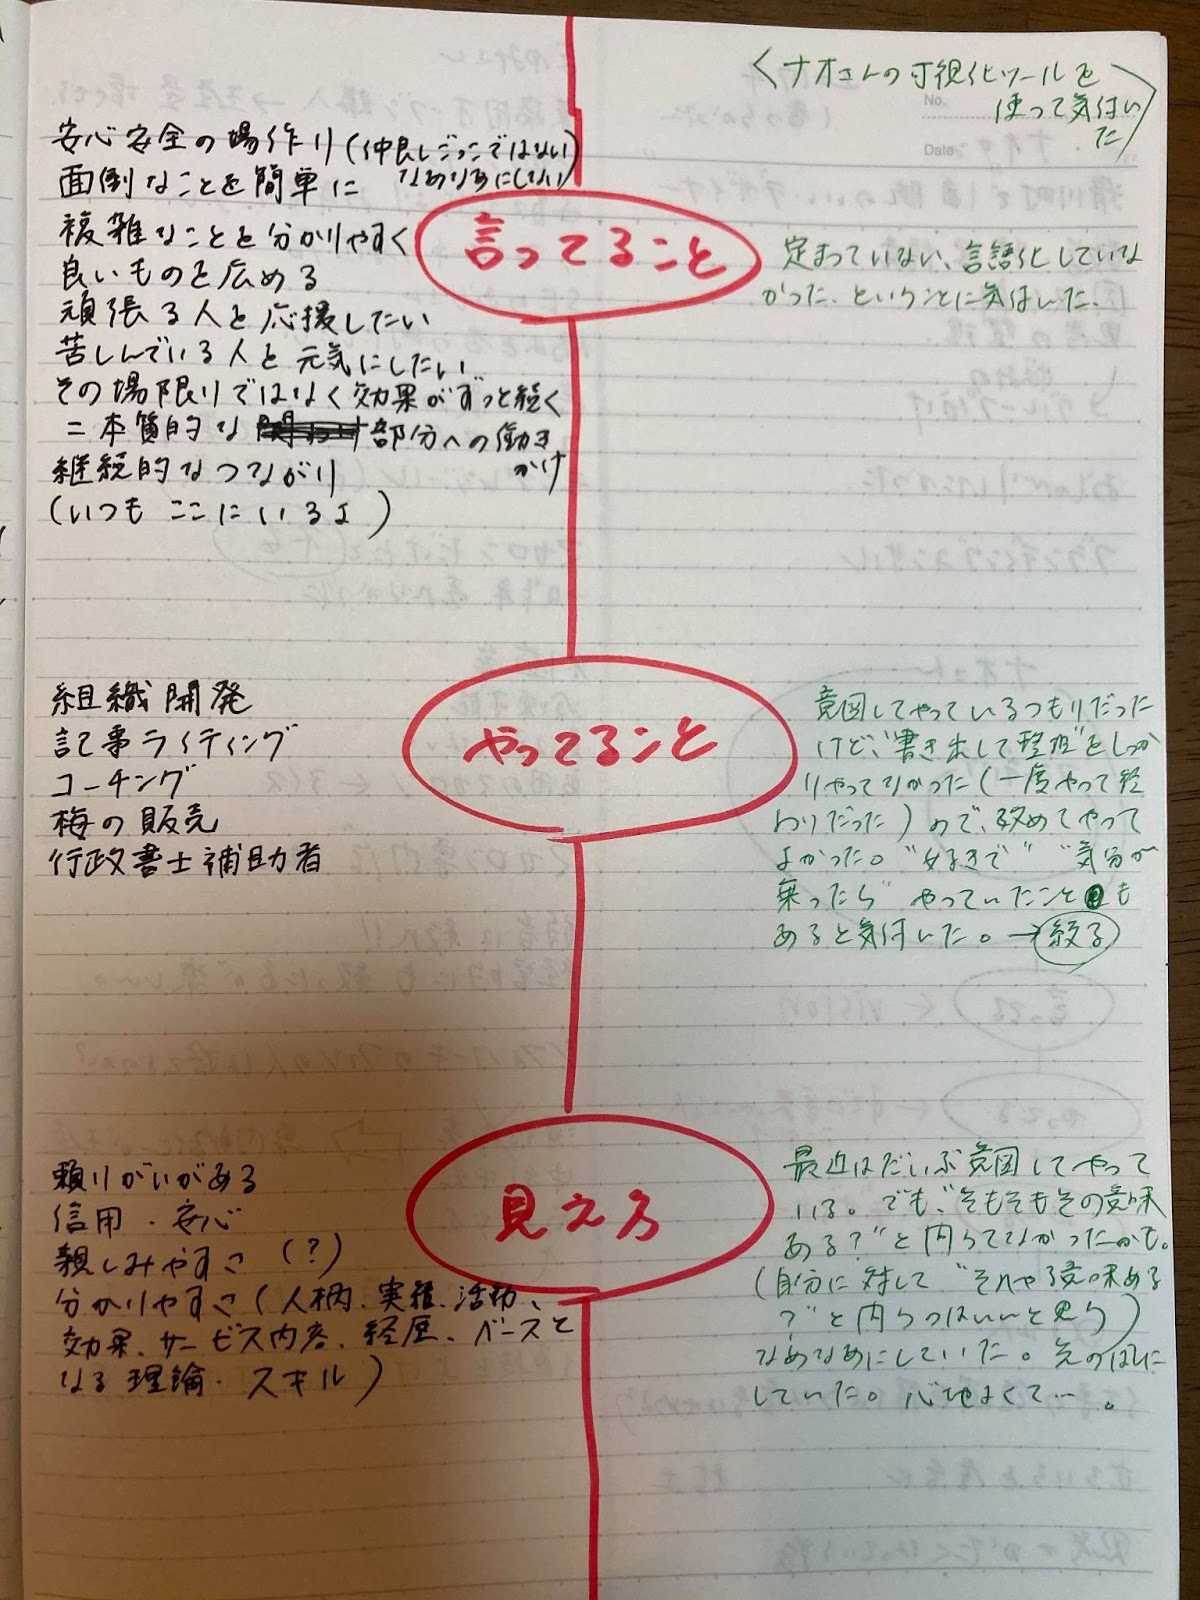 〈ナオさんの可視化ツールを
使って気付い
た〉
No.
Date
安心安全の場作り(仲良しごっこではない)
なあなあにしない
面倒なことを簡単に
複雑なことを分かりやすく
良いものを広める
頑張る人を応援したい
苦しんでいる人を元気にしたい
その場限りではなく効果がずっと続く
=本質的な部分への働き
かけ
継続的なつながり
(いつもここにいるよ)
言ってること
定まっていない、言語化していな
かった、ということに気付いた、
組織開発
記事ライティング
コーチング
梅の販売
行政書士補助者
やってること
意図してやっているつもりだった
けど、"書き出して整理"をしっか
りやってなかった(一度やって終
わりだった)ので、改めてやって
よかった。"好きで" "気分が
乗ったら"やっていたことも
あると気付いた。→絞る
頼りがいがある
信用・安心
親しみやすさ(?)
分かりやすさ(人柄、実績、活動、
効果、サービス内容、経歴、ベースと
なる理論・スキル)
見え方
最近はだいぶ意図してやって
いる。でも、"そもそもその意味
ある?"と問うてなかったかも。
(自分に対して"それやる意味ある
?"と問うのはいいと思う)
なあなあにしていた。先のばしに
していた。心地よくて…。